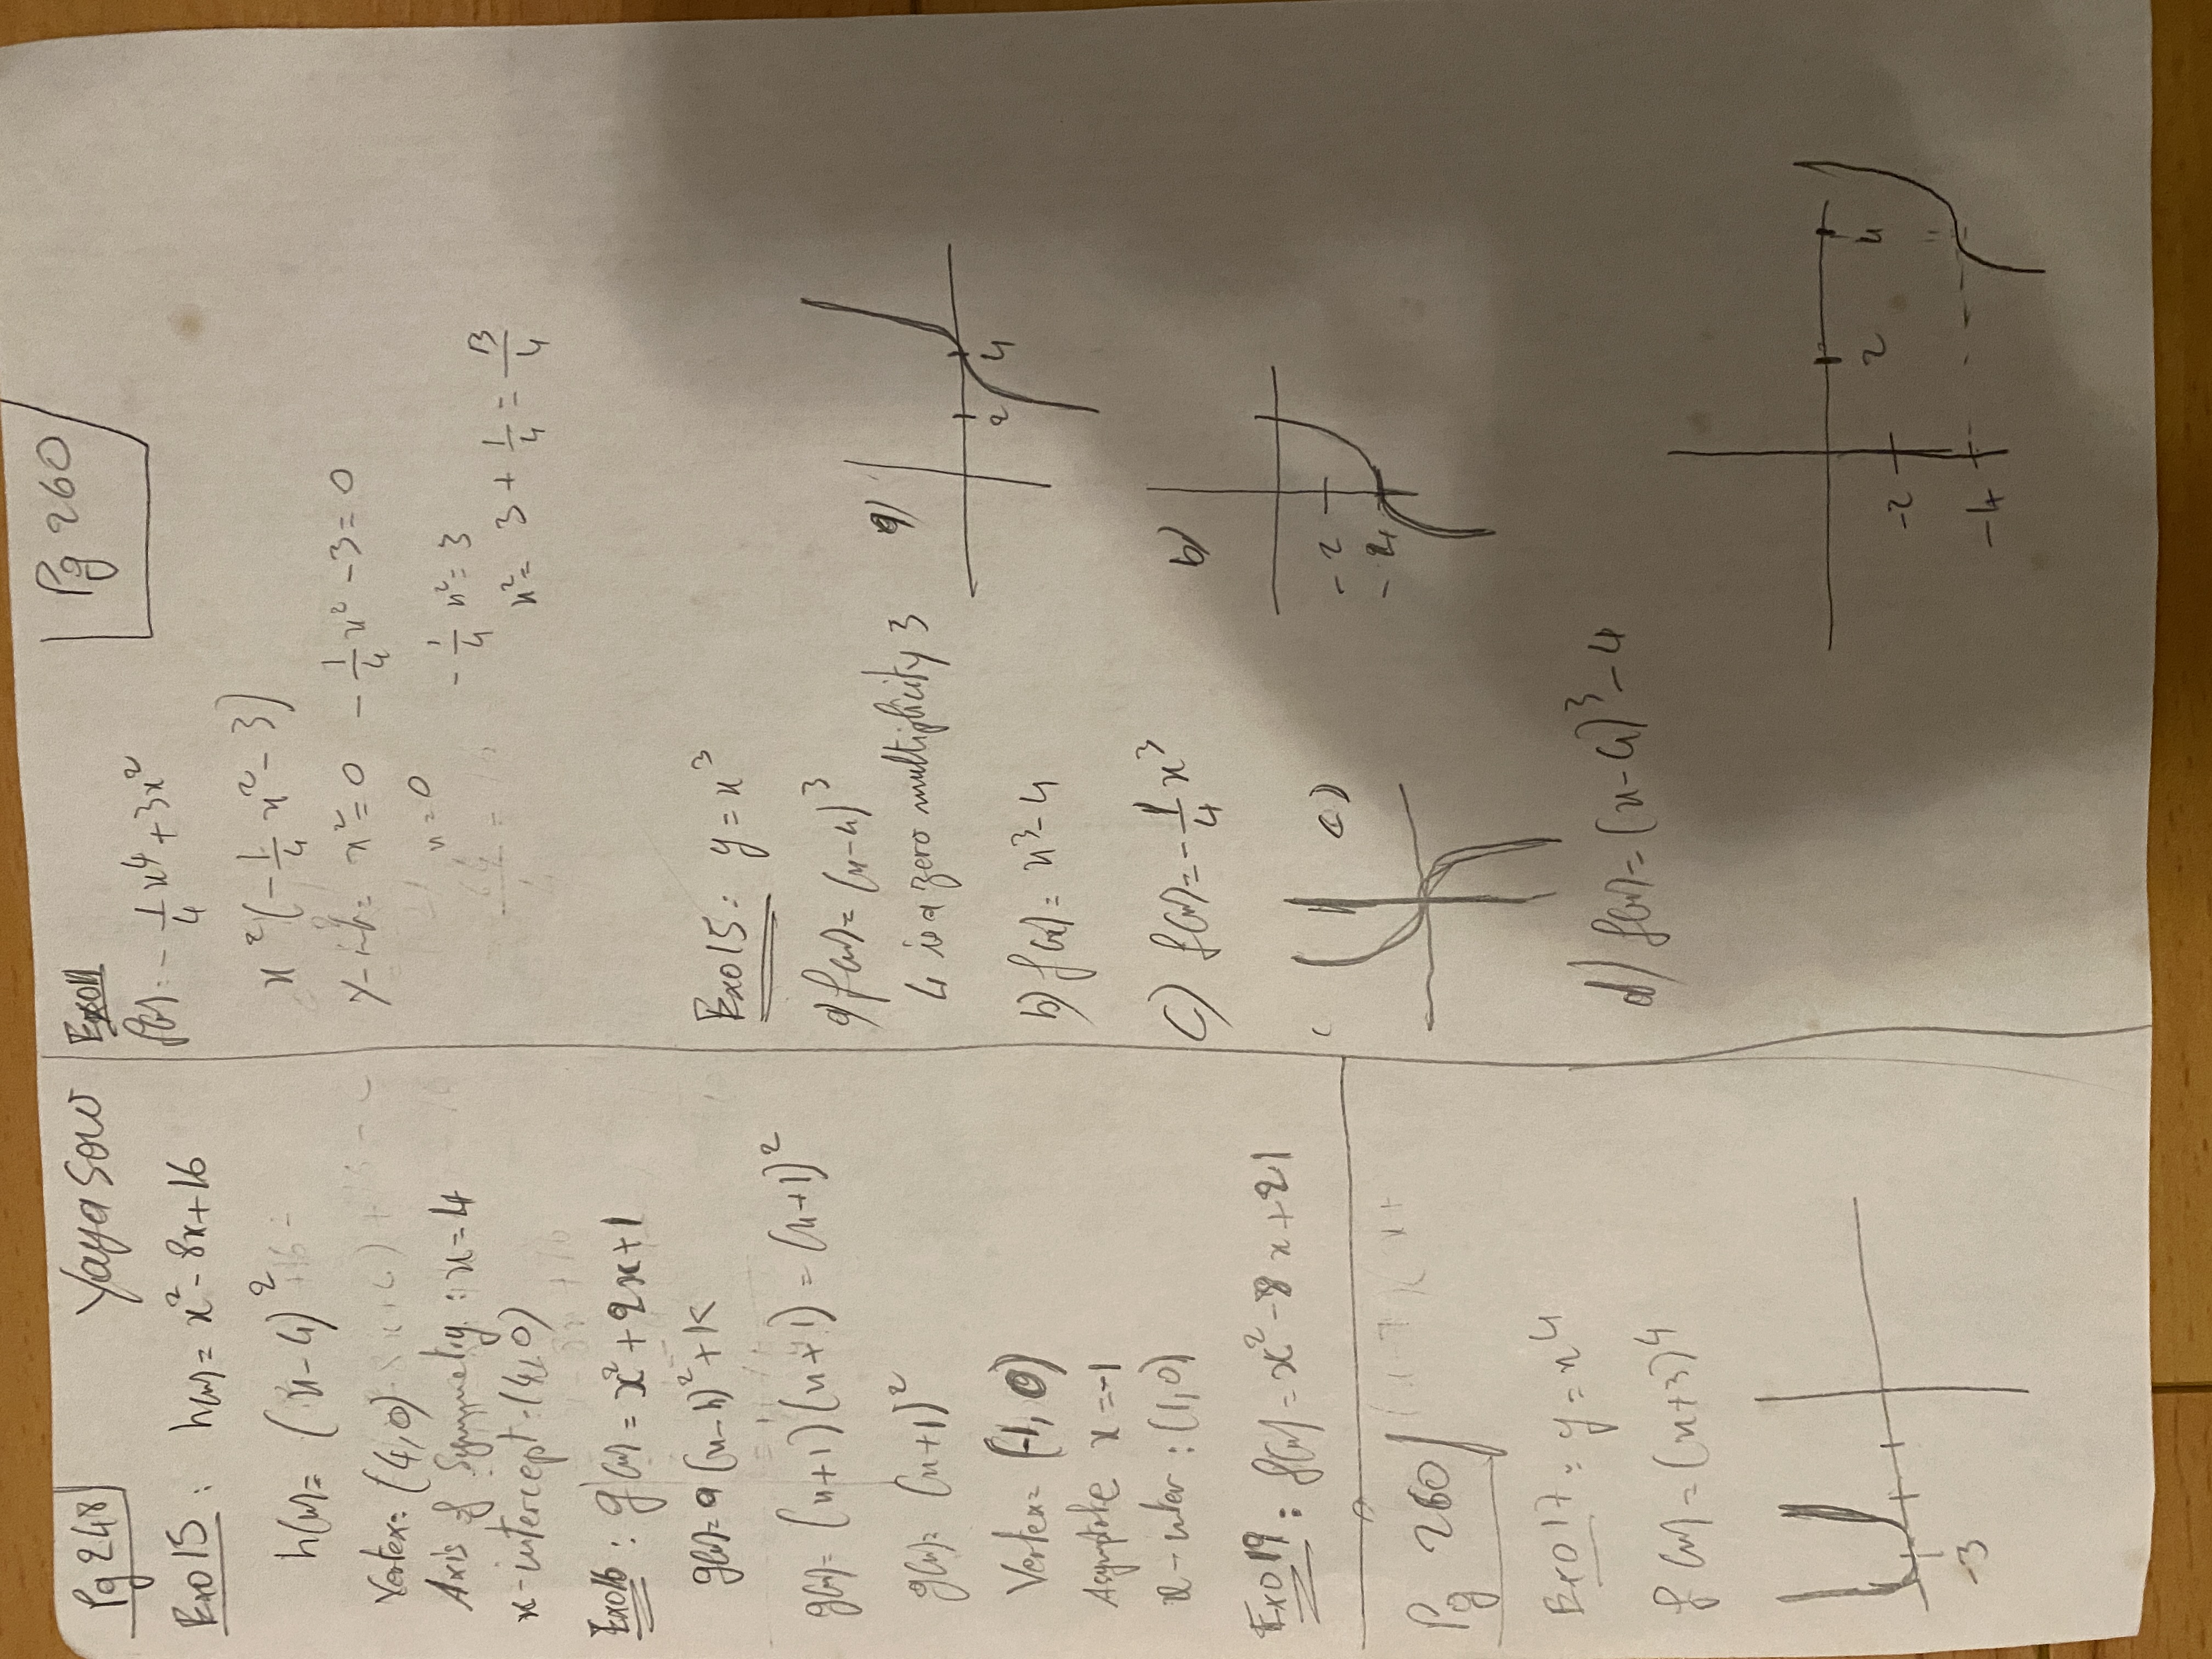 Pg 248
Yaya Sow
Exo 15 : h(x) = x² - 8x + 16
h(x) = (x - 4)²
Vertex = (4, 0)
Axis of Symmetry : x = 4
x-intercept = (4, 0)
Exo 16 : g(x) = x² + 2x + 1
g(x) = a(x - h)² + k
g(x) = (x + 1)(x + 1) = (x + 1)²
g(x) = (x + 1)²
Vertex = (-1, 0)
Asymptote x = -1
x - inter : (1, 0)
Exo 19 : f(x) = x² - 8x + 21
Pg 260
Exo 17 : y = x⁴
f(x) = (x + 3)⁴
-3
Exo 11
Pg 260
f(x) : - 1/4 x⁴ + 3x²
x² (- 1/4 x² - 3)
y-int = x² = 0   - 1/4 x² - 3 = 0
x = 0
- 1/4 x² = 3
x² = 3 + 1/4 = 13/4
Exo 15 : y = x³
a) f(x) = (x - 4)³
4 is a zero multiplicity 3
a)
2 4
b) f(x) = x³ - 4
c) f(x) = - 1/4 x³
b)
-2
-4
c)
d) f(x) = (x - 4)³ - 4
2 4
-2
-4